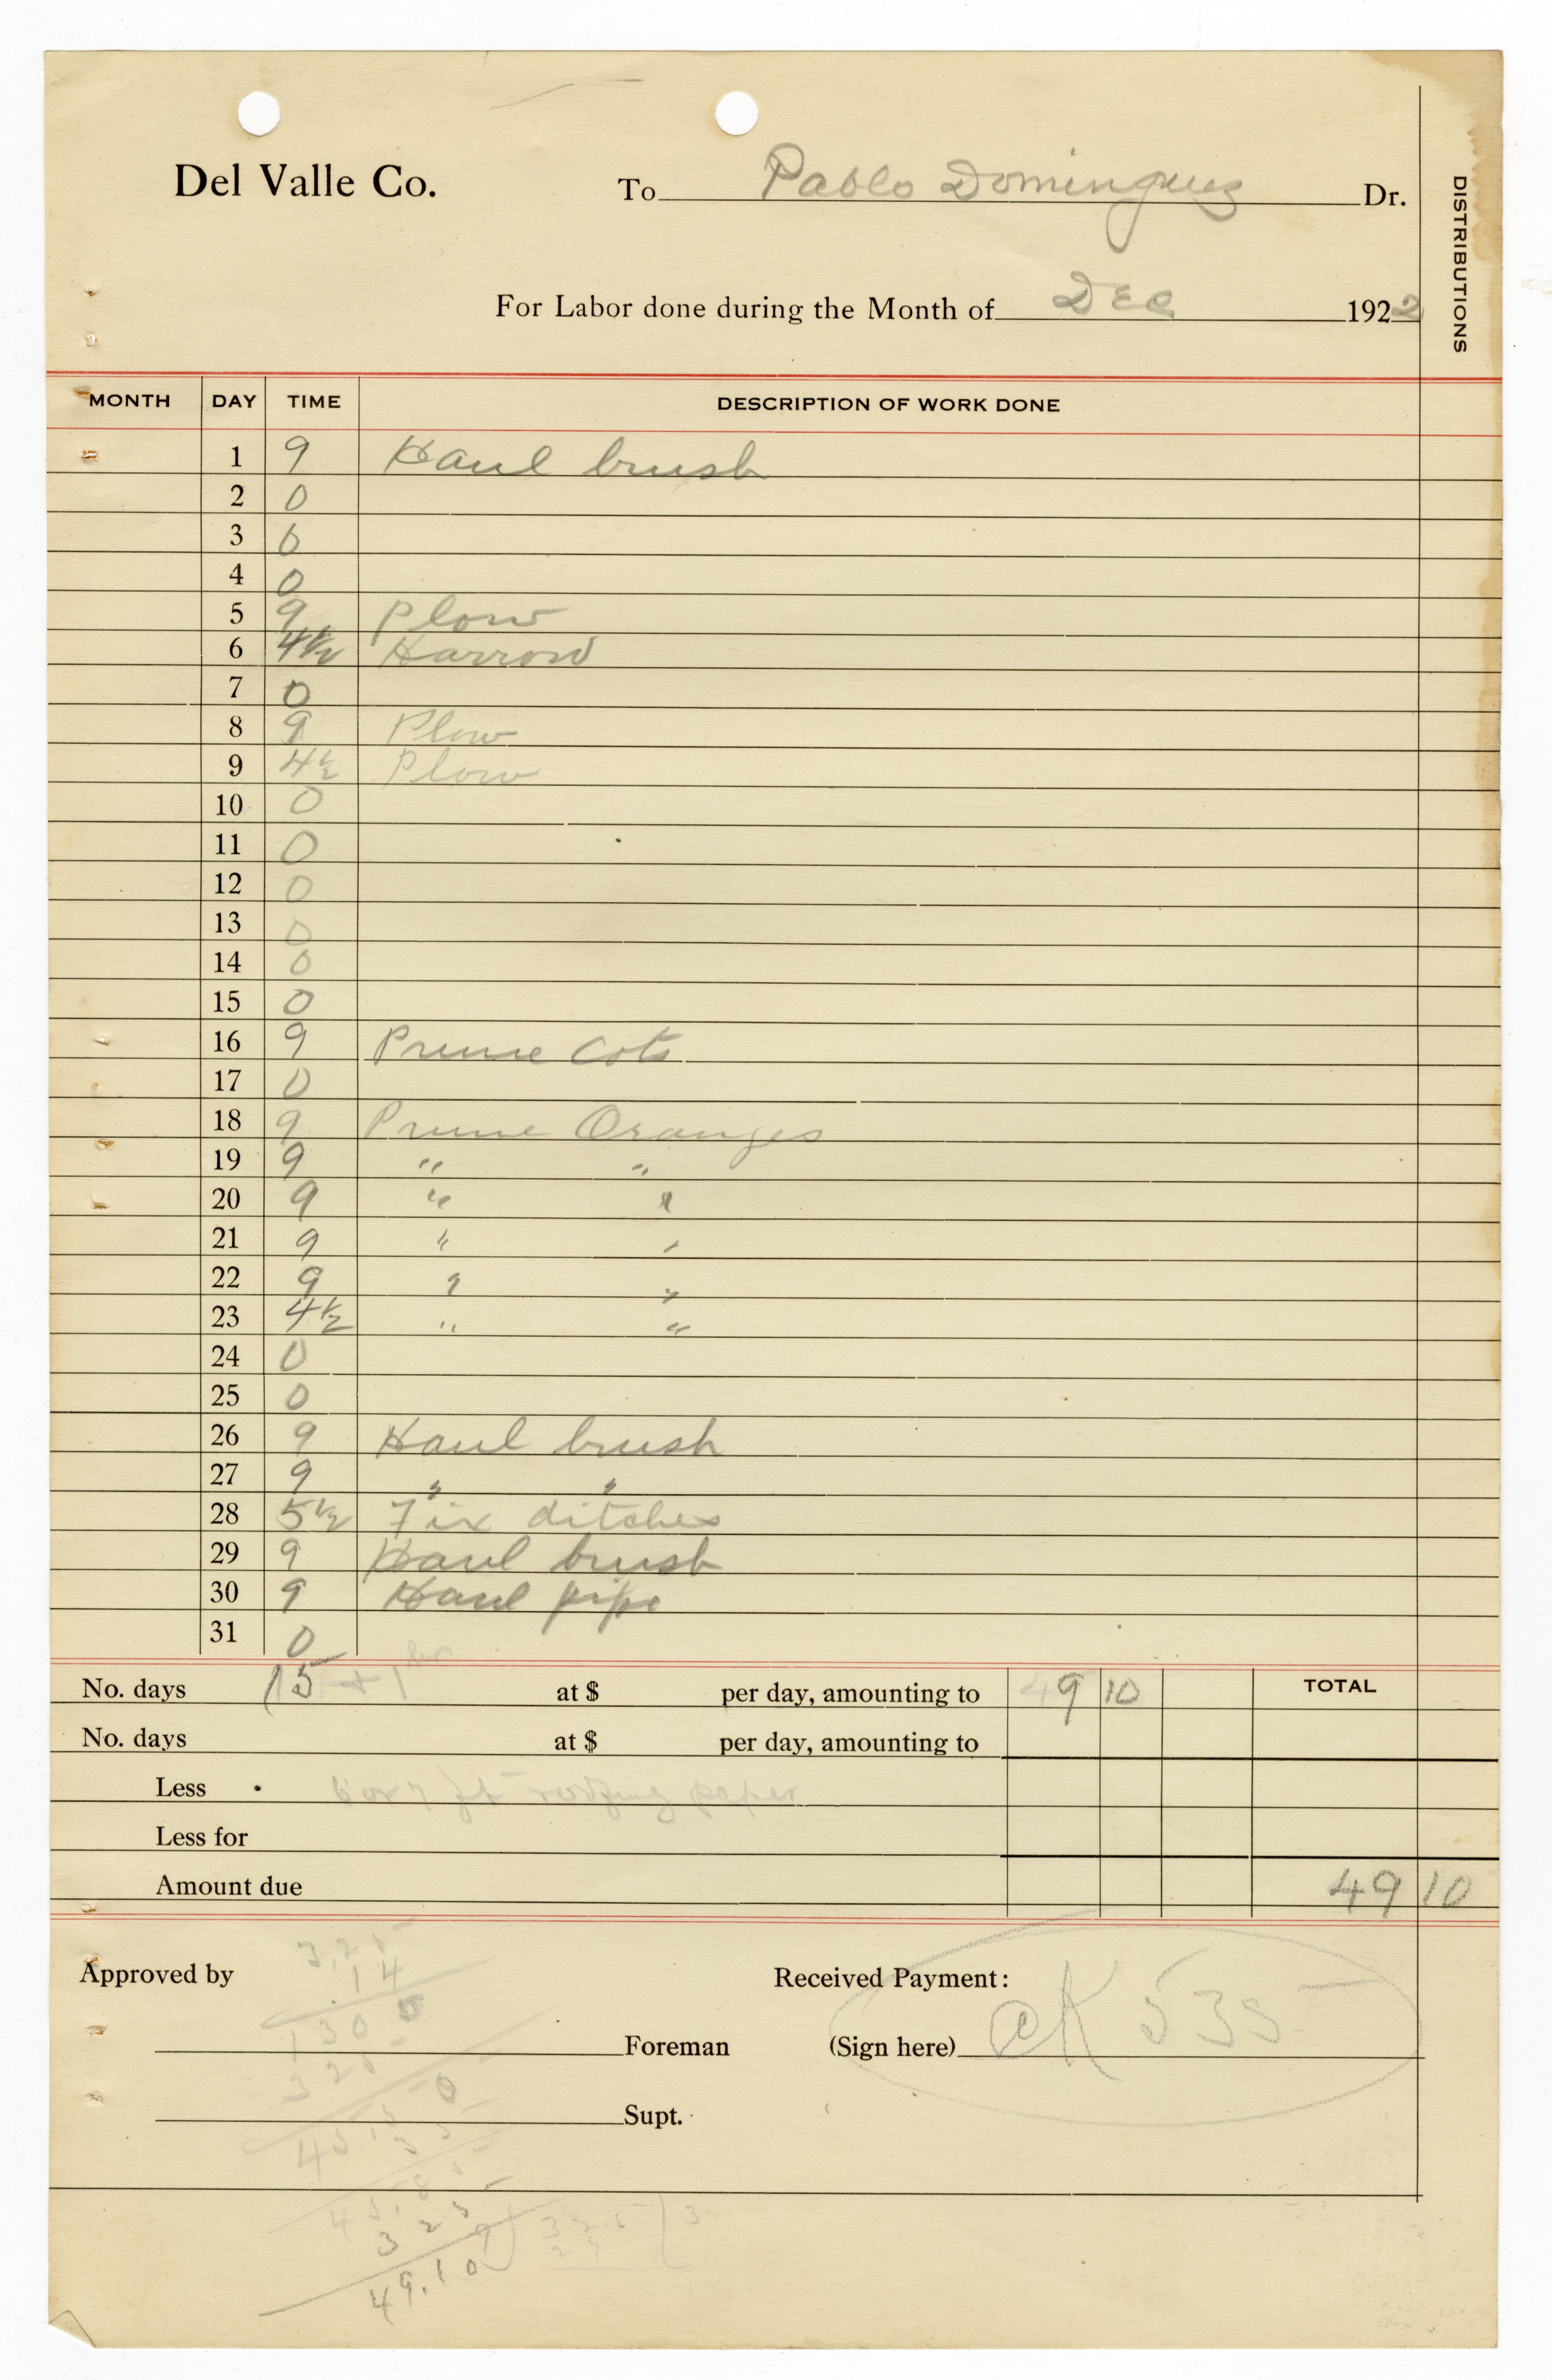 Del Valle Co. To Pablo Dominguez Dr.
DISTRIBUTIONS
For Labor done during the Month of Dec 1922
MONTH DAY TIME DESCRIPTION OF WORK DONE
1 9 Haul brush
2 0
3 0
4 0
5 9 Plow
6 4½ Harrow
7 0
8 9 Plow
9 4½ Plow
10 0
11 0
12 0
13 0
14 0
15 0
16 9 Prune Cots
17 0
18 9 Prune Oranges
19 9 " "
20 9 " "
21 9 " "
22 9 " "
23 4½ " "
24 0
25 0
26 9 Haul brush
27 9 " "
28 5½ Fix ditches
29 9 Haul brush
30 9 Haul pipe
31 0
No. days 15 + 1 hr at $ per day, amounting to 49 10 TOTAL
No. days at $ per day, amounting to
Less ft roofing paper
Less for
Amount due 49 10
3.25
.14
1300
325
45.50
35
45.85
325
49.10
Approved by Received Payment:
Foreman (Sign here) OK 535
Supt.